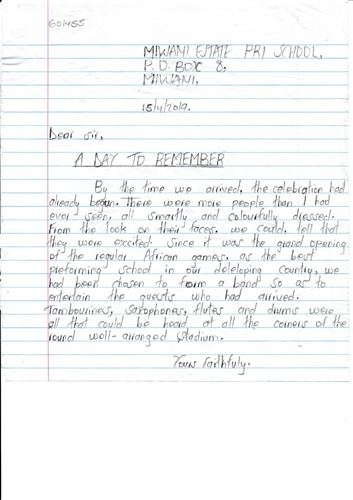 601455
MIWANI ESTATE PRI SCHOOL,
P. O. BOX 8,
MIWANI,
15/4/2019.
Dear Sir,
A DAY TO REMEMBER
By the time we arrived, the celebration had
already begun. There were more people than I had
ever seen, all smartly and colourfully dressed.
From the look on their faces, we could tell that
they were excited. Since it was the grand opening
of the regular African games, as the best
preforming school in our deleloping country, we
had been chosen to form a band so as to
entertain the guests who had arrived.
Tambourines, saxophones, flutes and drums were
all that could be heard at all the corners of the
round well-arranged stadium.
Yours faithfuly.